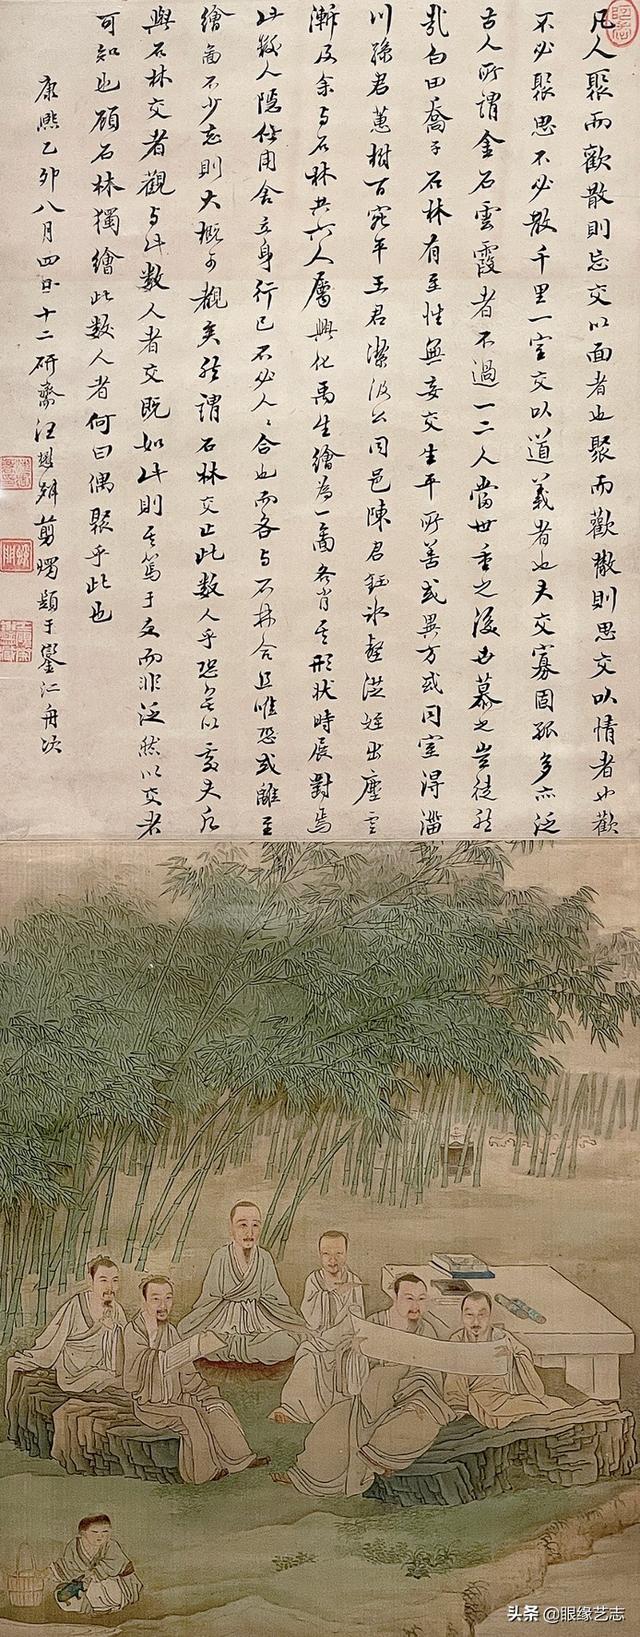 凡人聚而歡散則忘交以面者也聚而歡散則思交以情者也歡
不必聚思不必散千里一室交以道義者也夫交寡固孤多亦泛
古人所謂金石雲霞者不過一二人當世重之後世慕之豈徒然
哉白田喬子石林有至性無妄交生平所善或異方或同室得淄
川孫君蕙樹百宛平王君潔汲公同邑陳君鈺冰壑洪經出塵雲
漸及余与石林共六人屬興化禹生繪為一圖各肖其形狀時展對焉
此數人隱仕用舍立身行己不必人人合也而各与石林合且唯恐或離至
繪圖不少忘則大概可觀矣然謂石林交止此數人乎恐無以處夫凡
與石林交者觀与此數人者交既如此則其篤于交而非泛然以交者
可知也顧石林獨繪此數人者何曰偶聚乎此也
康熙乙卯八月四日十二研齋汪懋麟剪燭題于鑾江舟次
头条 @眼缘艺志